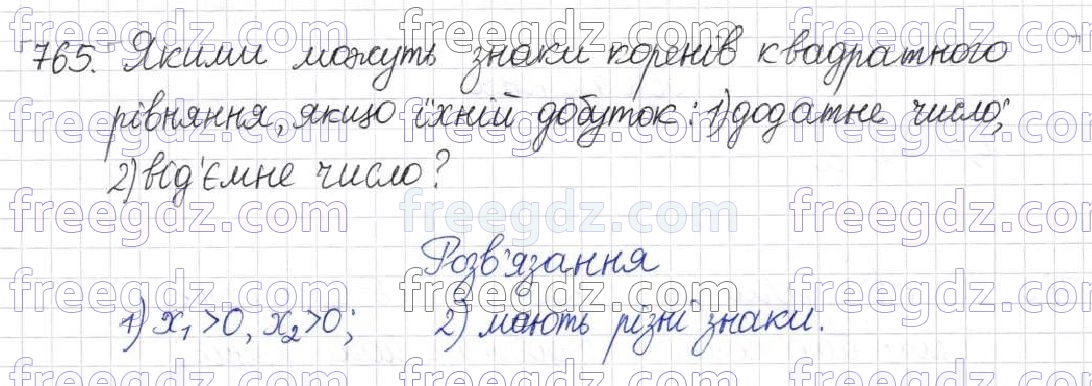 765. Якими можуть знаки коренів квадратного
рівняння, якщо їхній добуток: 1) додатне число;
2) від'ємне число?
Розв'язання
1) x₁ >0, x₂ >0; 2) мають різні знаки.
freegdz.com freegdz.com freegdz.com
freegdz.com freegdz.com freegdz.com
freegdz.com freegdz.com freegdz.com
freegdz.com freegdz.com freegdz.com
freegdz.com freegdz.com freegdz.com
freegdz.com freegdz.com freegdz.com